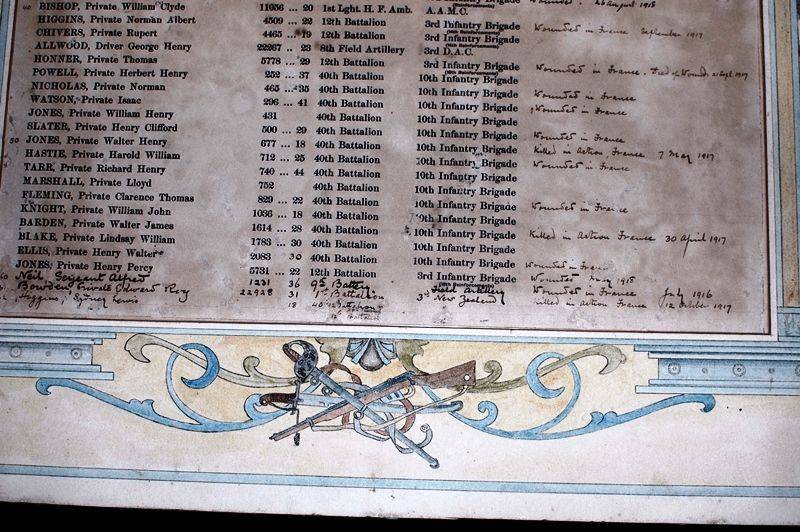 40 BISHOP, Private William Clyde 11056 ... 20 1st Lght. H. F. Amb. A.A.M.C. Wounded. 26 August 1918
HIGGINS, Private Norman Albert 4509 ... 22 12th Battalion 3rd Infantry Brigade
CHIVERS, Private Rupert 4465 ... 19 12th Battalion 3rd Infantry Brigade Wounded in France September 1917
ALLWOOD, Driver George Henry 22267 .. 23 8th Field Artillery 3rd D.A.C.
HONNER, Private Thomas 5778 ... 29 12th Battalion 3rd Infantry Brigade
POWELL, Private Herbert Henry 252 ... 37 40th Battalion 10th Infantry Brigade Wounded in France. Died of Wounds 21 Sept 1917
NICHOLAS, Private Norman 465 ... 35 40th Battalion 10th Infantry Brigade
WATSON, Private Isaac 296 ... 41 40th Battalion 10th Infantry Brigade Wounded in France
JONES, Private William Henry 431 40th Battalion 10th Infantry Brigade Wounded in France
SLATER, Private Henry Clifford 500 ... 29 40th Battalion 10th Infantry Brigade
50 JONES, Private Walter Henry 677 ... 18 40th Battalion 10th Infantry Brigade Wounded in France
HASTIE, Private Harold William 712 ... 25 40th Battalion 10th Infantry Brigade Killed in Action France 7 May 1917
TARR, Private Richard Henry 740 ... 44 40th Battalion 10th Infantry Brigade Wounded in France
MARSHALL, Private Lloyd 752 40th Battalion 10th Infantry Brigade
FLEMING, Private Clarence Thomas 829 ... 22 40th Battalion 10th Infantry Brigade
KNIGHT, Private William John 1036 ... 18 40th Battalion 10th Infantry Brigade Wounded in France
BARDEN, Private Walter James 1614 ... 28 40th Battalion 10th Infantry Brigade
BLAKE, Private Lindsay William 1783 ... 30 40th Battalion 10th Infantry Brigade Killed in Action France 30 April 1917
ELLIS, Private Henry Walter 2083 30 40th Battalion 10th Infantry Brigade
JONES, Private Henry Percy 5731 ... 22 12th Battalion 3rd Infantry Brigade Wounded in France
60 Neil, Sergeant Alfred 1231 36 9th Battery Field Artillery Wounded May 1918
Bowden, Private Edward Roy 22928 31 1st Battalion 3rd New Zealand Wounded in France July 1916
Higgins, Sydney Lewis 18 40 Battalion Killed in action France 12 October 1917